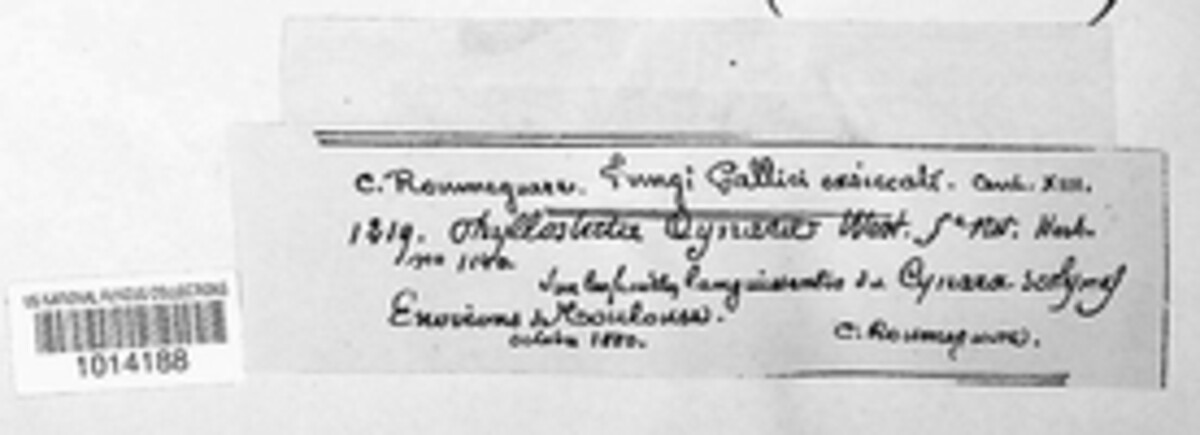 C. Roumeguere. Fungi Gallici exsiccati. Cent. XIII.
1219. Phyllosticta Cynarae West. Herb.
no
Sur les feuilles languissantes de Cynara scolymus
Environs de Toulouse.
octobre 1880.
C. Roumeguere.
US NATIONAL FUNGUS COLLECTIONS
1014188